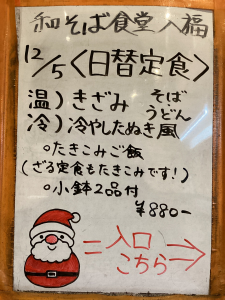 和そば食堂 入福
12/5〈日替定食〉
温)きざみ そば
冷)冷やしたぬき風 うどん
○たきこみご飯
(ざる定食もたきこみです!)
○小鉢2品付
¥880-
=入口
こちら→